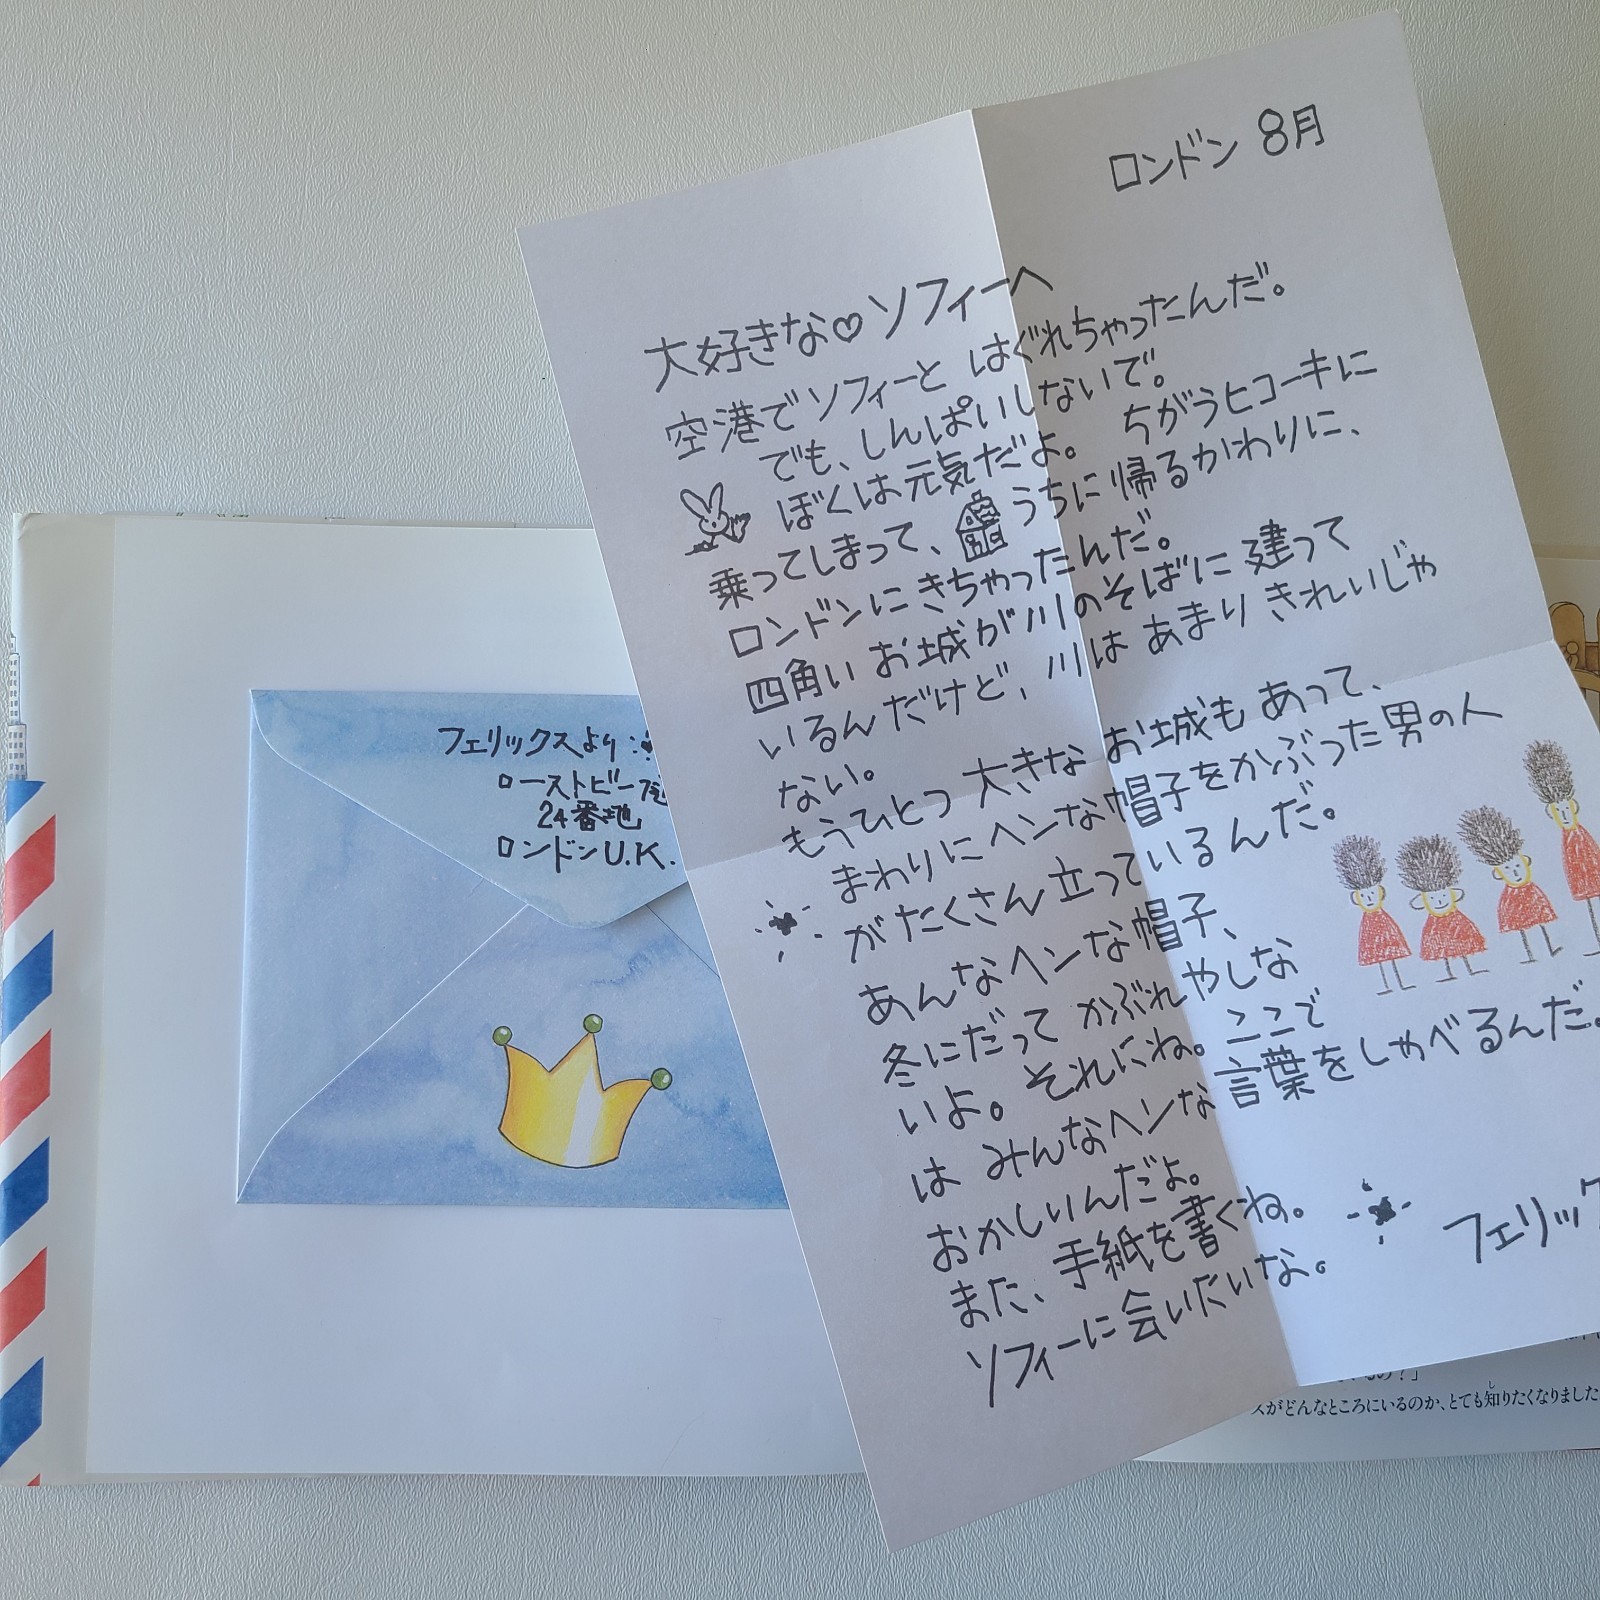 ロンドン 8月
大好きな♡ソフィーへ
空港でソフィーと はぐれちゃったんだ。
でも、しんぱいしないで。
ぼくは元気だよ。 ちがうヒコーキに
乗ってしまって、 うちに帰るかわりに、
ロンドンにきちゃったんだ。
四角い お城が川のそばに 建って
いるんだけど、川は あまり きれいじゃ
ない。
もうひとつ 大きな お城も あって、
まわりにヘンな帽子をかぶった男の人
がたくさん立っているんだ。
あんなヘンな帽子、
冬にだって かぶれやしな
いよ。それにね。ここで
は みんなヘンな言葉をしゃべるんだ。
おかしいんだよ。
また、手紙を書くね。
ソフィーに会いたいな。
フェリック
フェリックスより
ローストビーフ
24番地
ロンドンU.K.
の？」
スがどんなところにいるのか、とても知りたくなりました